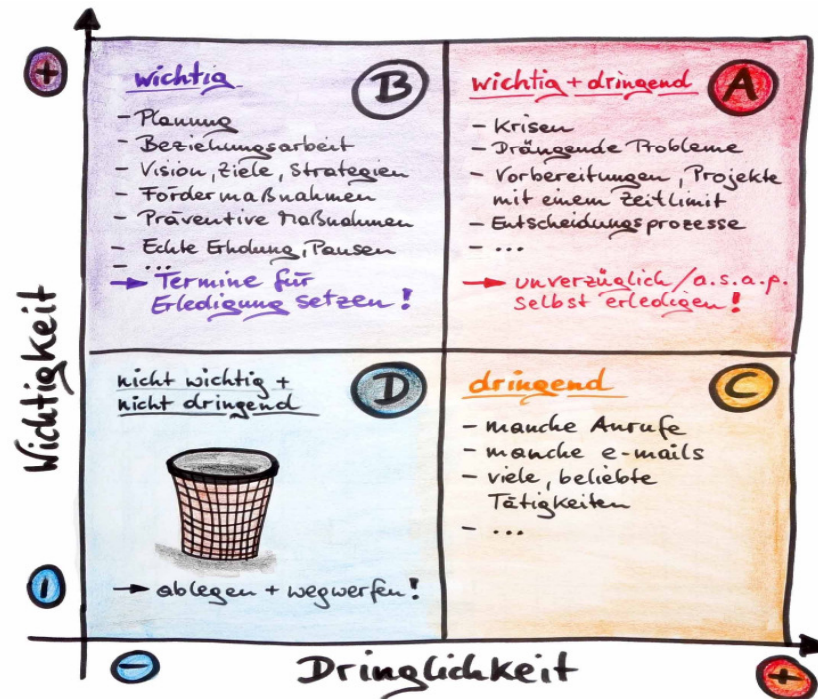 +
wichtig
B
- Planung
- Beziehungsarbeit
- Vision, Ziele, Strategien
- Fördermaßnahmen
- Präventive Maßnahmen
- Echte Erholung, Pausen
- ...
→ Termine für
Erledigung setzen!
wichtig + dringend
A
- Krisen
- Drängende Probleme
- Vorbereitungen, Projekte
mit einem Zeitlimit
- Entscheidungsprozesse
- ...
→ unverzüglich / a.s.a.p.
selbst erledigen!
Wichtigkeit
nicht wichtig +
nicht dringend
D
→ ablegen + wegwerfen!
dringend
C
- manche Anrufe
- manche e-mails
- viele, beliebte
Tätigkeiten
- ...
-
-
Dringlichkeit
+